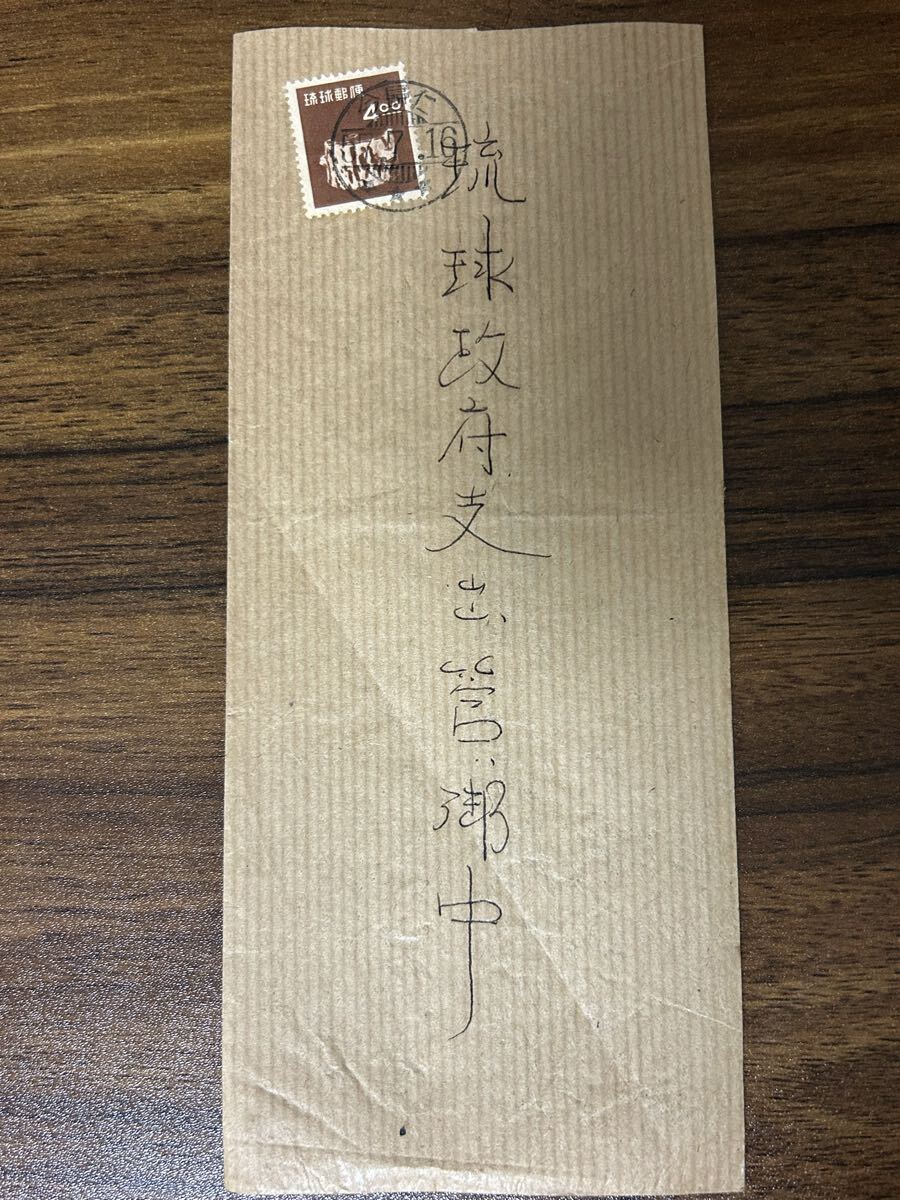 琉球郵便
4.00
7.16
琉球政府支出官御中